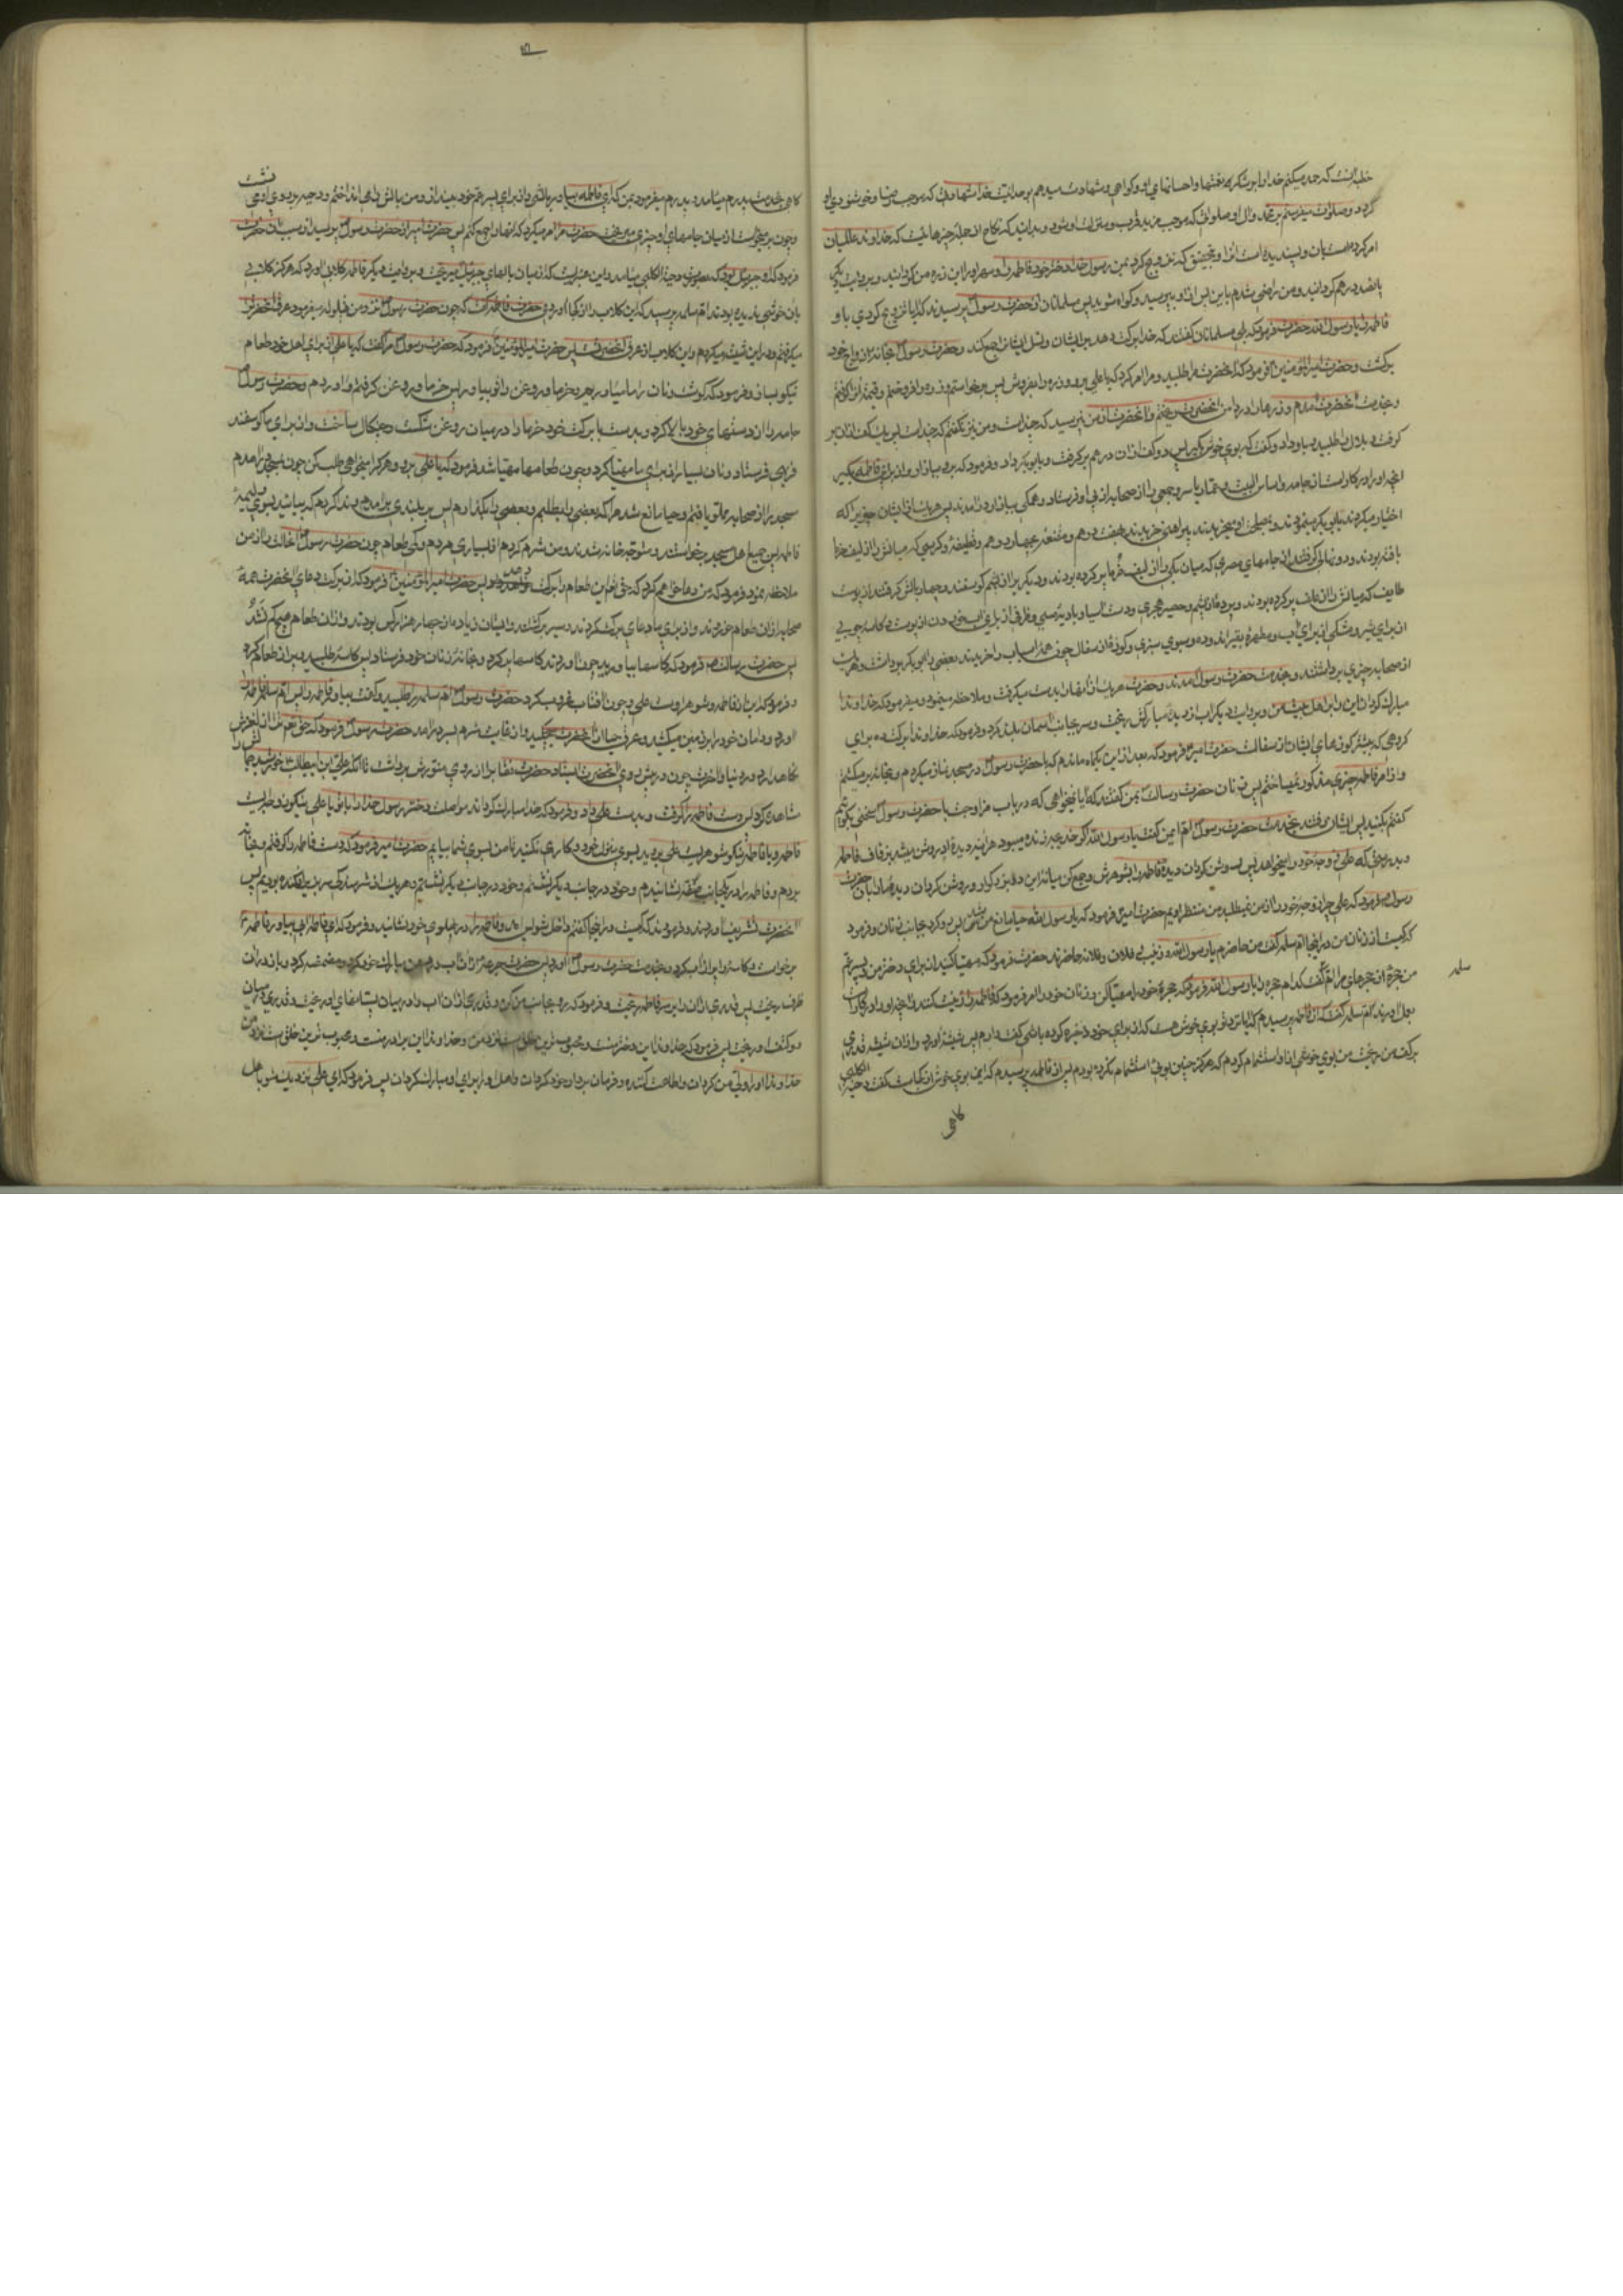 خطبه اینست که حمد میکنم خدا را بو شکر بر نعمتها و احسانهای او و کواهی و شهادت میدهم بوحدانیت خدا شهادتی که موجب رضا و خوشنودی او
کردد و صلوات میفرستم بر محمد و آل او صلواتی که موجب مزید قرب و منزلت او شود و بدانید که نکاح از جمله چیزهائیست که خداوند عالمیان
امر کرده است بآن و پسندیده است آنرا و بتحقیق که تزویج کرد بمن رسول خدا دختر خود فاطمه را و مهر او را این زره من کردانید و بروایت دیکر
پانصد درهم کردانید و من راضی شدم باین پس از او بپرسید و کواه شوید پس مسلمانان از حضرت رسول پرسیدند که آیا تزویج کردی باو
فاطمه را یا رسول الله حضرت فرمود که بلی مسلمانان کفتند که خدا برکت دهد بر ایشان و شمل ایشانرا جمع کند و حضرت رسول بخانه ازواج خود
برکشت و حضرت امیر المؤمنین فرمود که آنحضرت مرا طلبید و مرا امر کرد که یا علی برو و زره را بفروش پس برخواستم و زره را فروختم و قیمت آنرا کرفتم
و بخدمت آنحضرت آمدم و زرها را در دامن آنحضرت ریختم و آنحضرت از من نپرسید که چند است و من نیز نکفتم که چند است پس یک کف از آن بر
کرفت و بلال را طلبید و باو داد و کفت که بوی خوش بکیر پس دو کف از آن درهم بر کرفت و بابو بکر داد و فرمود که برو ببازار و از برای فاطمه بکیر
آنچه او را در کار است از جامه و اساس البیت و عمار یاسر و جمعی را از صحابه از پی او فرستاد و همکی ببازار در آمدند پس هر یک از ایشان چیزیرا که
اختیار میکردند بابی بکر مینمودند و بمصلحت او میخریدند پیراهنی خریدند بهفت درهم و مقنعه بچهار درهم و قطیفه و کرسی که میانش را از لیف خرما
بافته بودند و دو نهالی از جامهای مصری که میان یکی را از لیف خرما پر کرده بودند و دیکریرا از پشم کوسفند و چهار بالش کرفتند از پوست
طایف که میانش را از علف پر کرده بودند و پرده از پشم و حصیر هجری و دست آسیا و بادیه مسی و ظرفی از برای آب خوردن از پوست و کاسه چوبی
از برای شیر و مشکی از برای آب و مطهره بقیر اندوده و سبوی سبزی و کوزها از سفال چون همه اسباب را خریدند بعضی را ابو بکر برداشت و هر یک
از صحابه چیزی برداشتند و بخدمت حضرت رسول آمدند و حضرت هر یک از آنها را بدست میکرفت و ملاحظه مینمود و میفرمود که خداوندا
مبارک کردان این را بر اهل بیت من و بروایت دیکر آب از دیده مبارکش ریخت و سر بجانب آسمان بلند کرد و فرمود که خداوندا برکت ده برای
کروهی که بیشتر کوزهای ایشان از سفال است حضرت امیر فرمود که بعد از این یکماه ماندم که با حضرت رسول در مسجد نماز میکردم و بخانه بر میکشتم
و از امر فاطمه چیزی مذکور نمیساختم پس زنان حضرت رسالت بمن کفتند که آیا نمیخواهی که در باب مزاوجت با حضرت رسول سخنی بکوئیم
کفتم بکنید پس ایشان رفتند بخدمت حضرت رسول ام ایمن کفت یا رسول الله اکر خدیجه زنده میبود هر آینه دیده او روشن میشد بزفاف فاطمه
و بدرستی که علی زوجه خود را میخواهد پس روشن کردان دیده فاطمه را بشوهرش و جمع کن میانه این دو بزرکوار و روشن کردان دیده ما را بآن حضرت
رسول فرمود که علی چرا زوجه خود را از من نمیطلبد من منتظر او بودیم حضرت امیر فرمود که یا رسول الله حیا مانع من شد پس رو کرد بجانب زنان و فرمود
که کیست از زنان من در اینجا ام سلمه کفت من حاضرم یا رسول الله و زینب و فلان و فلانه حاضرند حضرت فرمود که مهیا کنید از برای دختر من و پسر عم
من حجره از حجرهای مرا ام کفت کدام حجره را یا رسول الله فرمود که حجره خود را مهیا کن و زنان خود را امر فرمود که فاطمه را زینت کنند و آنچه او را در کار است
بعمل آورند ام سلمه کفت که از فاطمه پرسیدم که آیا نزد تو بوی خوش هست که از برای خود ذخیره کرده باشی کفت دارم پس شیشه آورد و از آن شیشه قدری
برکف من ریخت من بوی خوشی از آن استشمام کردم که هرکز چنین بوئی استشمام نکرده بودم پس از فاطمه پرسیدم که این بوی خوش از کجاست کفت دحیه الکلبی
سلمه
کاهی
کاهی بخدمت پدرم میآمد و پدرم میفرمود بمن که ای فاطمه بیا و بالش را از برای پسر عم خود بینداز و من بالش را می انداختم و دحیه بر روی او می نشست
و چون بر میخواست از میان جامهای او چیزی میریخت حضرت مرا امر میکرد که آنها را جمع کنم پس حضرت امیر از حضرت رسول پرسید از سبب آن حضرت
فرمود که او جبرئیل بود که بصورت دحیه الکلبی میآمد و این عنبریست که از میان بالهای جبرئیل میریخت و بروایت دیکر فاطمه کلابی آورد که هرکز کلابی
بآن خوشی ندیده بودند ام سلمه پرسید که این کلاب را از کجا آوردی حضرت فاطمه کفت که چون حضرت رسول نزد من قیلوله میفرمود عرق آنحضرت را
میکرفتم و در این شیشه میکردم و این کلاب از عرق آنحضرتست پس حضرت امیر المؤمنین فرمود که حضرت رسول مرا کفت که یا علی از برای اهل خود طعام
نیکو بساز و فرمود که کوشت و نان را ما میآوریم و خرما و روغن را تو بیاور پس خرما و روغن کرفتم و آوردم و حضرت رسول
جامه را از دستهای خود بالا کرد و بدست با برکت خود خرما را در میان روغن شکست و چنکال ساخت و از برای ما کوسفند
فربهی فرستاد و نان بسیار از برای ما مهیا کرد و چون طعامها مهیا شد فرمود که یا علی برو و هر که را میخواهی طلب کن چون بمسجد در آمدم
مسجد پر از صحابه مملو یافتم و حیا مانع شد مرا که بعضی را بطلبم و بعضی را بکذارم پس بر بلندی بر آمدم و ندا کردم که بیائید بسوی ولیمه
فاطمه پس جمیع اهل مسجد برخواستند و متوجه خانه شدند و من شرم کردم از بسیاری مردم و کمی طعام چون حضرت رسول آنحالت را از من
ملاحظه نمود فرمود که من دعا خواهم کرد که حق تعالی این طعام را برکت دهد پس حضرت امیر المؤمنین فرمود که از برکت دعای آنحضرت همه
صحابه از آن طعام خوردند و از برای ما دعای برکت کردند و سیر برکشتند و ایشان زیاده از چهار هزار کس بودند و از آن طعام هیچ کم نشد
پس حضرت رسالت فرمود که کاسها بیاورید چون آوردند کاسها پر کرد و بخانه زنان خود فرستاد پس کاسه طلبید و پر از طعام کرد
و فرمود که این از فاطمه و شوهر اوست علی و چون آفتاب غروب کرد حضرت رسول ام سلمه را طلبید و کفت بیاور فاطمه را پس ام سلمه فاطمه را
آورد و دامان خود را بر زمین میکشید و عرق حیا از آنحضرت میچکید و از غایت شرم بسر در آمد حضرت رسول فرمود که حق تعالی ترا از لغزش
نکاهدارد در دنیا و آخرت چون در پیش روی آنحضرت ایستاد حضرت نقاب را از روی منورش برداشت تا آنکه علی ابن ابیطالب خورشید جمالش را
مشاهده کرد پس دست فاطمه را کرفت و بدست علی داد و فرمود که خدا مبارک کرداند مواصلت دختر رسول خدا را بر تو یا علی نیکو زوجه ایست
فاطمه و یا فاطمه نیکو شوهریست علی بروید بسوی منزل خود و کاری نکنید تا من بسوی شما بیایم حضرت امیر فرمود که دست فاطمه را کرفتم و بخانه
بردم و فاطمه را در یکجانب صفه نشانیدم و خود در جانب دیکر نشستم و هر یک از شرم سر بزیر افکنده بودیم پس
آنحضرت تشریف آوردند و فرمودند که کیست در اینجا کفتیم داخل شو پس آمد و فاطمه را در پهلوی خود نشانید و فرمود که ای فاطمه آبی بیاور فاطمه
برخواست و کاسه را پر از آب کرد و بخدمت حضرت رسول آورد پس حضرت جرعه از آن آب در دهن مبارک خود کرد و مضمضه کرد و باز در آن
ظرف ریخت پس قدری از آن را بر سر فاطمه ریخت و فرمود که رو بجانب من کن و قدری از آن آب را در میان پستانهای او ریخت و قدری در میان
دو کتف او ریخت پس فرمود که خداوندا این دختر منست و محبوب ترین خلق است نزد من و خداوندا این برادر منست و محبوب ترین خلق است نزد من
خداوندا او را ولی من کردان و اطاعت کننده و فرمان بردار خود کردان و اهل او را برای او مبارک کردان پس فرمود که ای علی نزدیک شو باهل